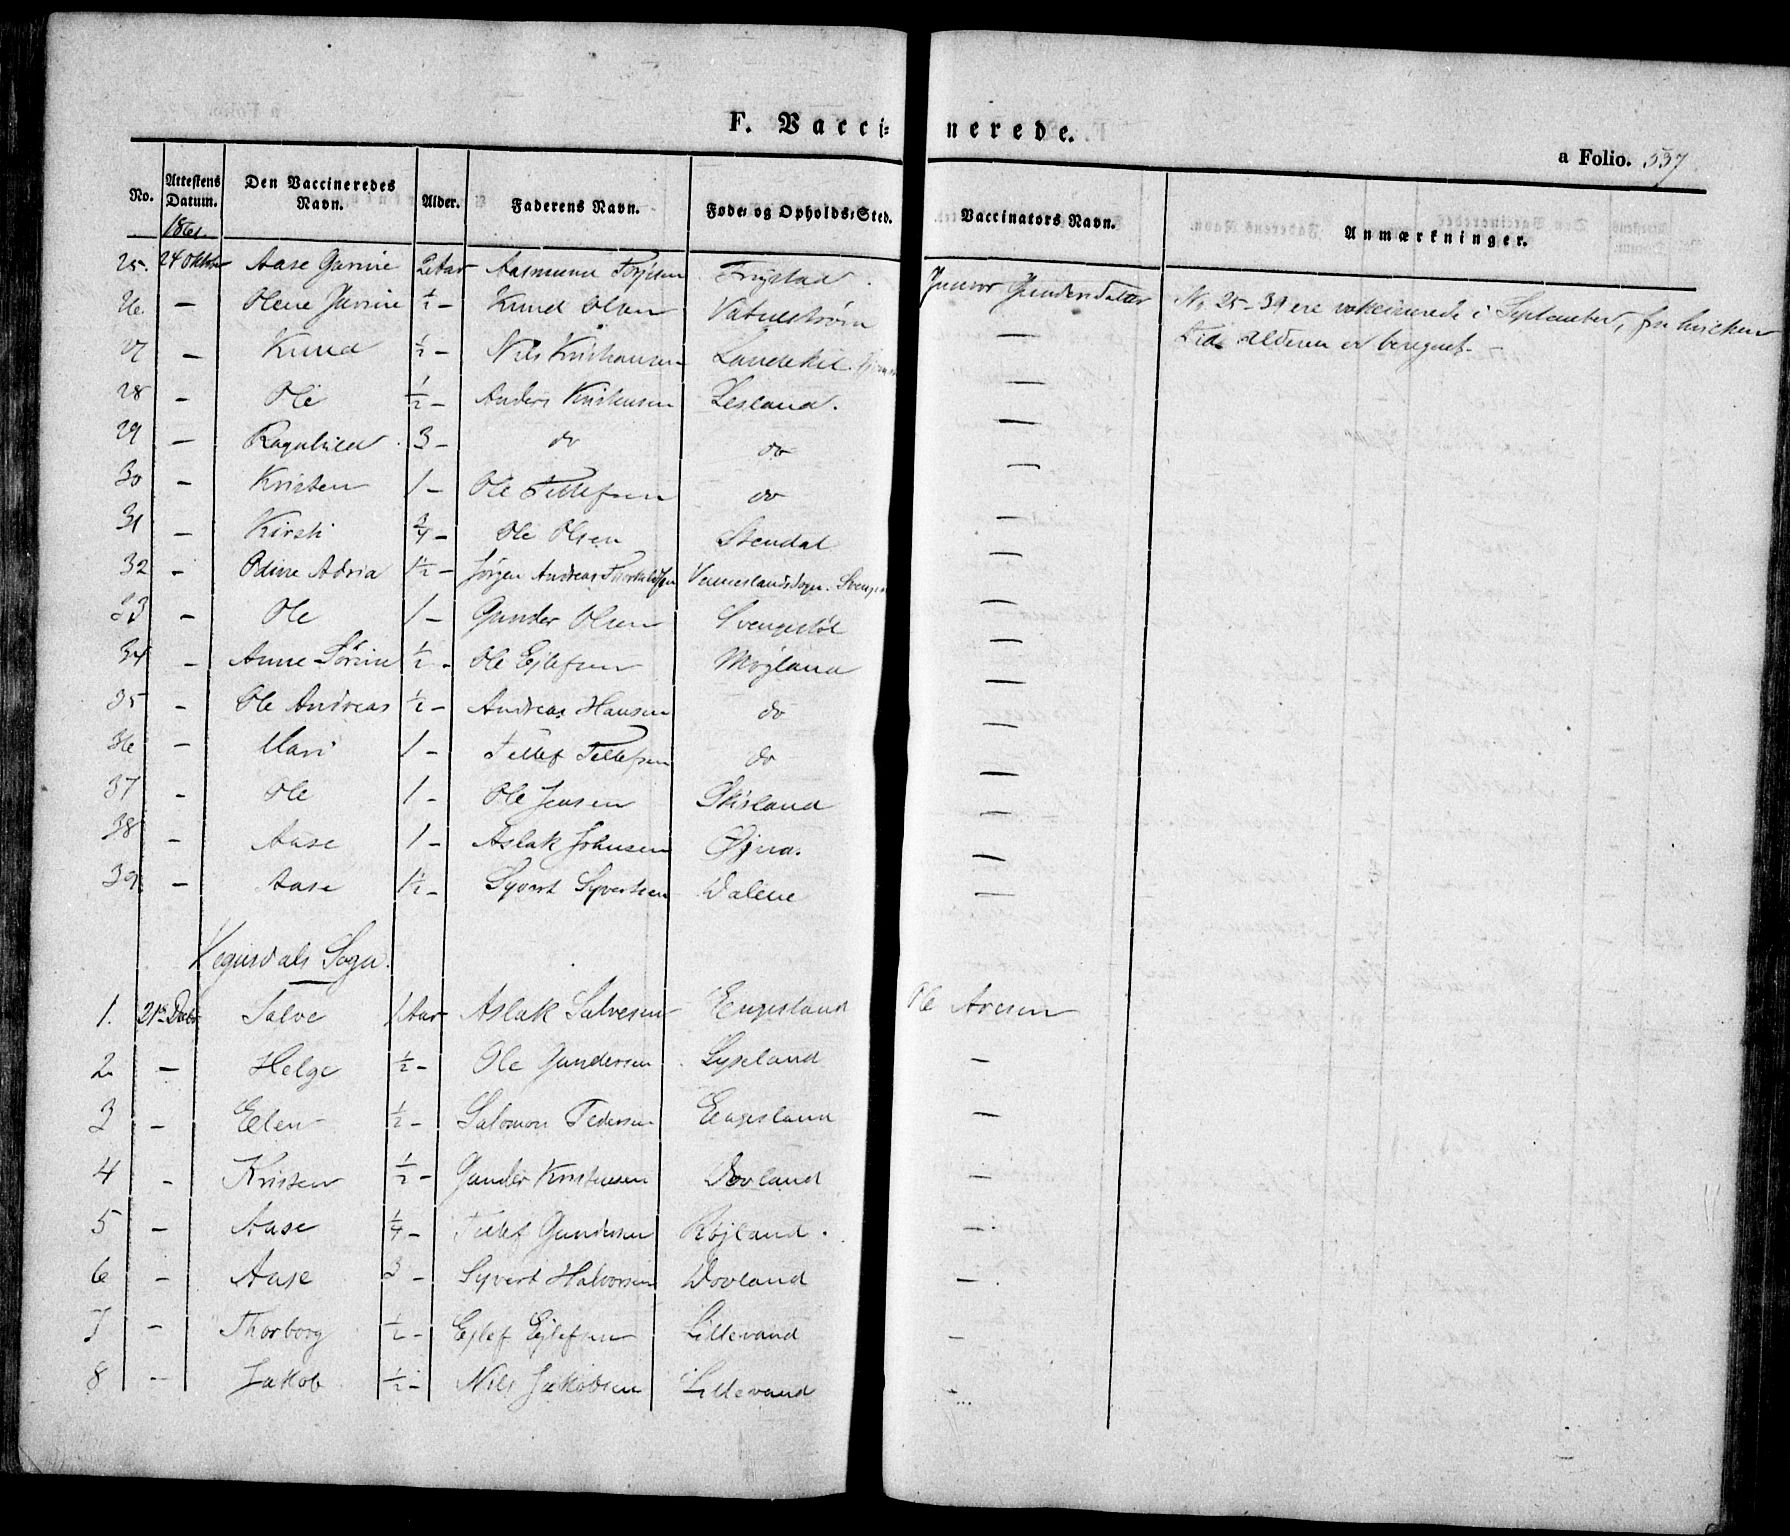 F. Vaccinerede.
a Folio. 537
No. | Attestens Datum. | Den Vaccineredes Navn. | Alder. | Faderens Navn. | Føde- og Opholds-Sted. | Vaccinators Navn. | Anmærkninger.
1861.
25. 24 Oktbr Aase Gurine 2 Aar Aasmund Torjesen Frigstad. Gunvor Gundersdatter No 25-39 ere vakcinerede i September, fra hvilken
26 — Olene Gurine ½ — Knud Olsen Vatnestrøm — Tid alderen er beregnet.
27 — Knud ½ — Nils Kristiansen Landekil —
28 — Ole ½ — Anders Kristensen Lesland. —
29 — Ragnhild 3 — do do —
30 — Kristen 1 — Ole Tellefsen do —
31 — Kirsti ¾ — Ole Olsen Stendal —
32 — Odine Adria 1½ — Jørgen Andreas Venneslandsogn. —
33 — Ole 1 — Gunder Olsen Svengestøl —
34 — Anne Sørine ½ — Ole Ejlefsen Mojland —
35 — Ole Andreas ½ — Andreas Hansen do —
36 — Mari 1 — Tellef Tellefsen do —
37 — Ole 1 — Ole Jensen Skisland —
38 — Aase 1 — Aslak Johnsen —
39 — Aase 1½ — Syvert Syvertsen Dalene —
Vegusdals Sogn.
1. 21de Decbr Salve 1 Aar Aslak Salvesen Engesland Ole Aresen
2 — Helge ½ — Ole Gundersen Lyseland —
3 — Elen ½ — Salomon Pedersen Engesland —
4 — Kristen ½ — Gunder Kristensen Dovland —
5 — Aase ¼ — Tellef Gundersen Røjland. —
6 — Aase 3 — Syvert Halvorsen Dovland —
7 — Thorborg ½ — Ejlef Ejlefsen Lillevand —
8 — Jakob ½ — Nils Jakobsen Lillevand —